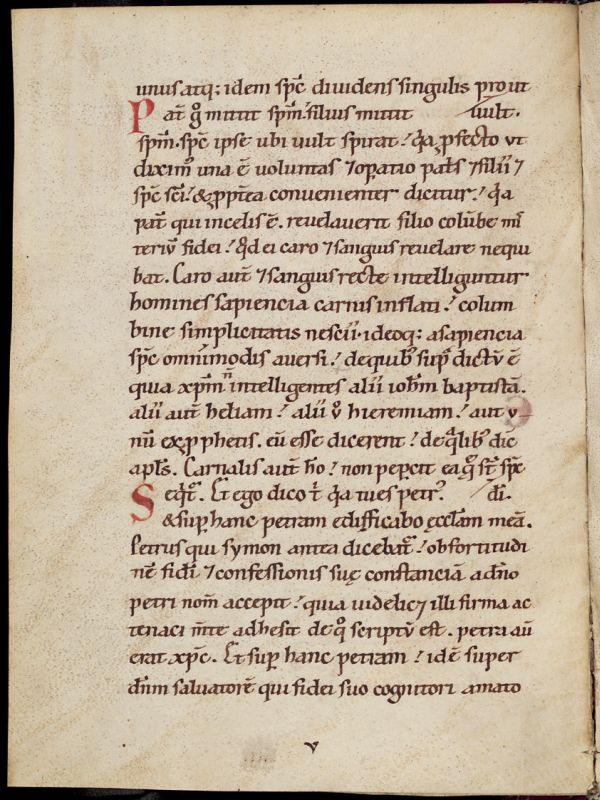 unus atq; idem sp̄c dividens singulis prout
Pat̄ gͦ mittit sp̄m. filius mittit vult.
sp̄m. sp̄c ipse ubi vult spirat. qͣ ꝓfecto ut
diximꝰ una ē voluntas ⁊ oꝑatio pat̄s ⁊ filii ⁊
sp̄c sc̄i. & ꝓpt̄ea convenienter dicitur. qͣ
pat̄ qui in celis ē. revelaverit filio colūbe mi
teriū fidei. qͦd ei caro ⁊ sanguis revelare nequi
bat. Caro aut̄ ⁊ sanguis recte intelliguntur
homines sapiencia carnis inflati. colum
bine simplicitatis nescii. ideoq; a sapiencia
sp̄c omnimodis aversi. de quibꝰ supͣ dictū ē
quia xp̄m n̄ intelligentes alii ioh̄m baptistā.
alii aut̄ heliam. alii vͦ hieremiam. aut v
nū ex ꝓphetis. eū esse dicerent. de qͣlibꝰ dic̄
apl̄s. Carnalis aut̄ hō. non percit ea qͦ st̄ sp̄c
Seqt̄. Et ego dico t̄ qͣ tu es petrꝰ. dī.
& suꝑ hanc petram edifficabo ęccl̄am meā.
Petrus qui symon antea dicebat̄. ob fortitudi
nē fidī ⁊ confessionis suę constanciā a dn̄o
petri nom̄ accepit. quia videlic⁊ illi firma ac
tenaci m̄te adhesit de qͦ scriptū est. petra aū
erat xp̄c. Et suꝑ hanc petram. idē super
dn̄m salvatorē qui fidei suo cognitori amato
v